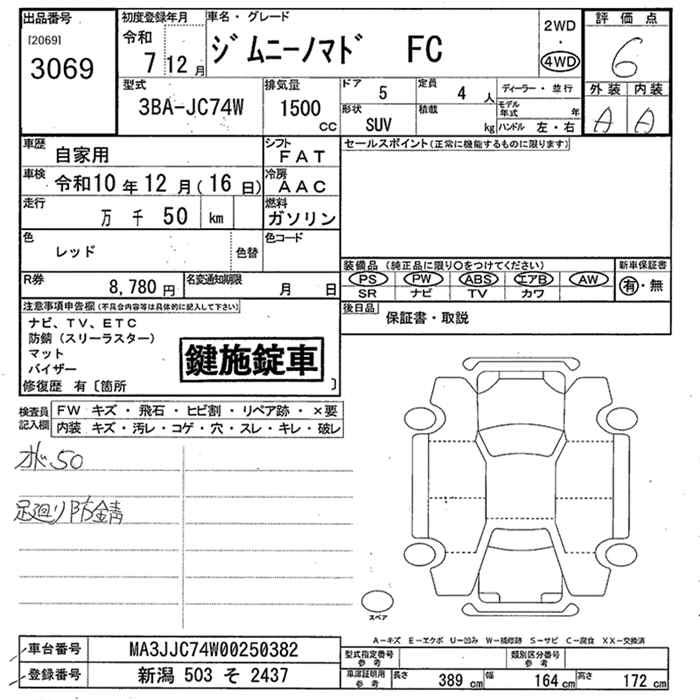 出品番号 初度登録年月 車名・グレード 2WD ・ 4WD 評価点
[2069] 3069 令和 7 12月 ジムニーノマド FC 6
型式 排気量 ドア 5 定員 4人 ディーラー・並行 外装 内装
3BA-JC74W 1500cc 形状 SUV 積載 kg モデル年式 年 ハンドル 左・右 A A
車歴 自家用 シフト FAT セールスポイント(正常に機能するものに限ります)
車検 令和10年12月(16日) 冷房 AAC
走行 万 千 50 km 燃料 ガソリン
色 レッド 色替 色コード
装備品(純正品に限り○をつけてください) 新車保証書
R券 8,780円 名変通知期限 月 日 PS PW ABS エアB AW 有・無
SR ナビ TV カワ
注意事項申告欄(不具合内容等は具体的に記入して下さい) 後日品 保証書・取説
ナビ、TV、ETC
防錆(スリーラスター)
マット
バイザー
鍵施錠車
修復歴 有〔箇所 〕
検査員記入欄 FW キズ・飛石・ヒビ割・リペア跡・×要
内装 キズ・汚レ・コゲ・穴・スレ・キレ・破レ
オド50
足廻り防錆
スペア
A-キズ E-エクボ U-凹み W-補修跡 S-サビ C-腐食 XX-交換済
車台番号 MA3JJC74W00250382 型式指定番号 参考 類別区分番号 参考
登録番号 新潟 503 そ 2437 車庫証明用 参考 長さ 389cm 幅 164cm 高さ 172cm